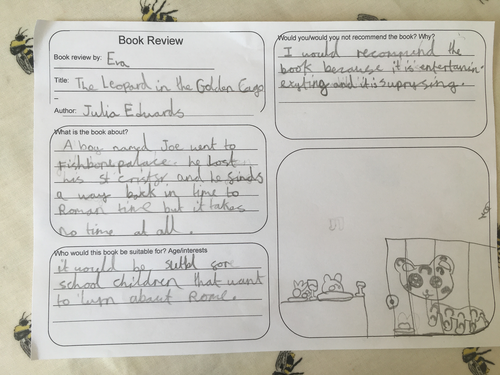 Book Review
Book review by: Eva
Title: The Leopard in the Golden Cage
Author: Julia Edwards
What is the book about?
A boy named Joe went to
Fishbornepalace. he Lost
his st cristofr and he finds
a way back in time to
Roman time but it takes
no time at all.
Who would this book be suitable for? Age/interests
it would be sutbl for
school children that want
to lurn about Rome.
Would you/would you not recommend the book? Why?
I would recomend the
book because it is entertainin
exyting and it is suprysing.